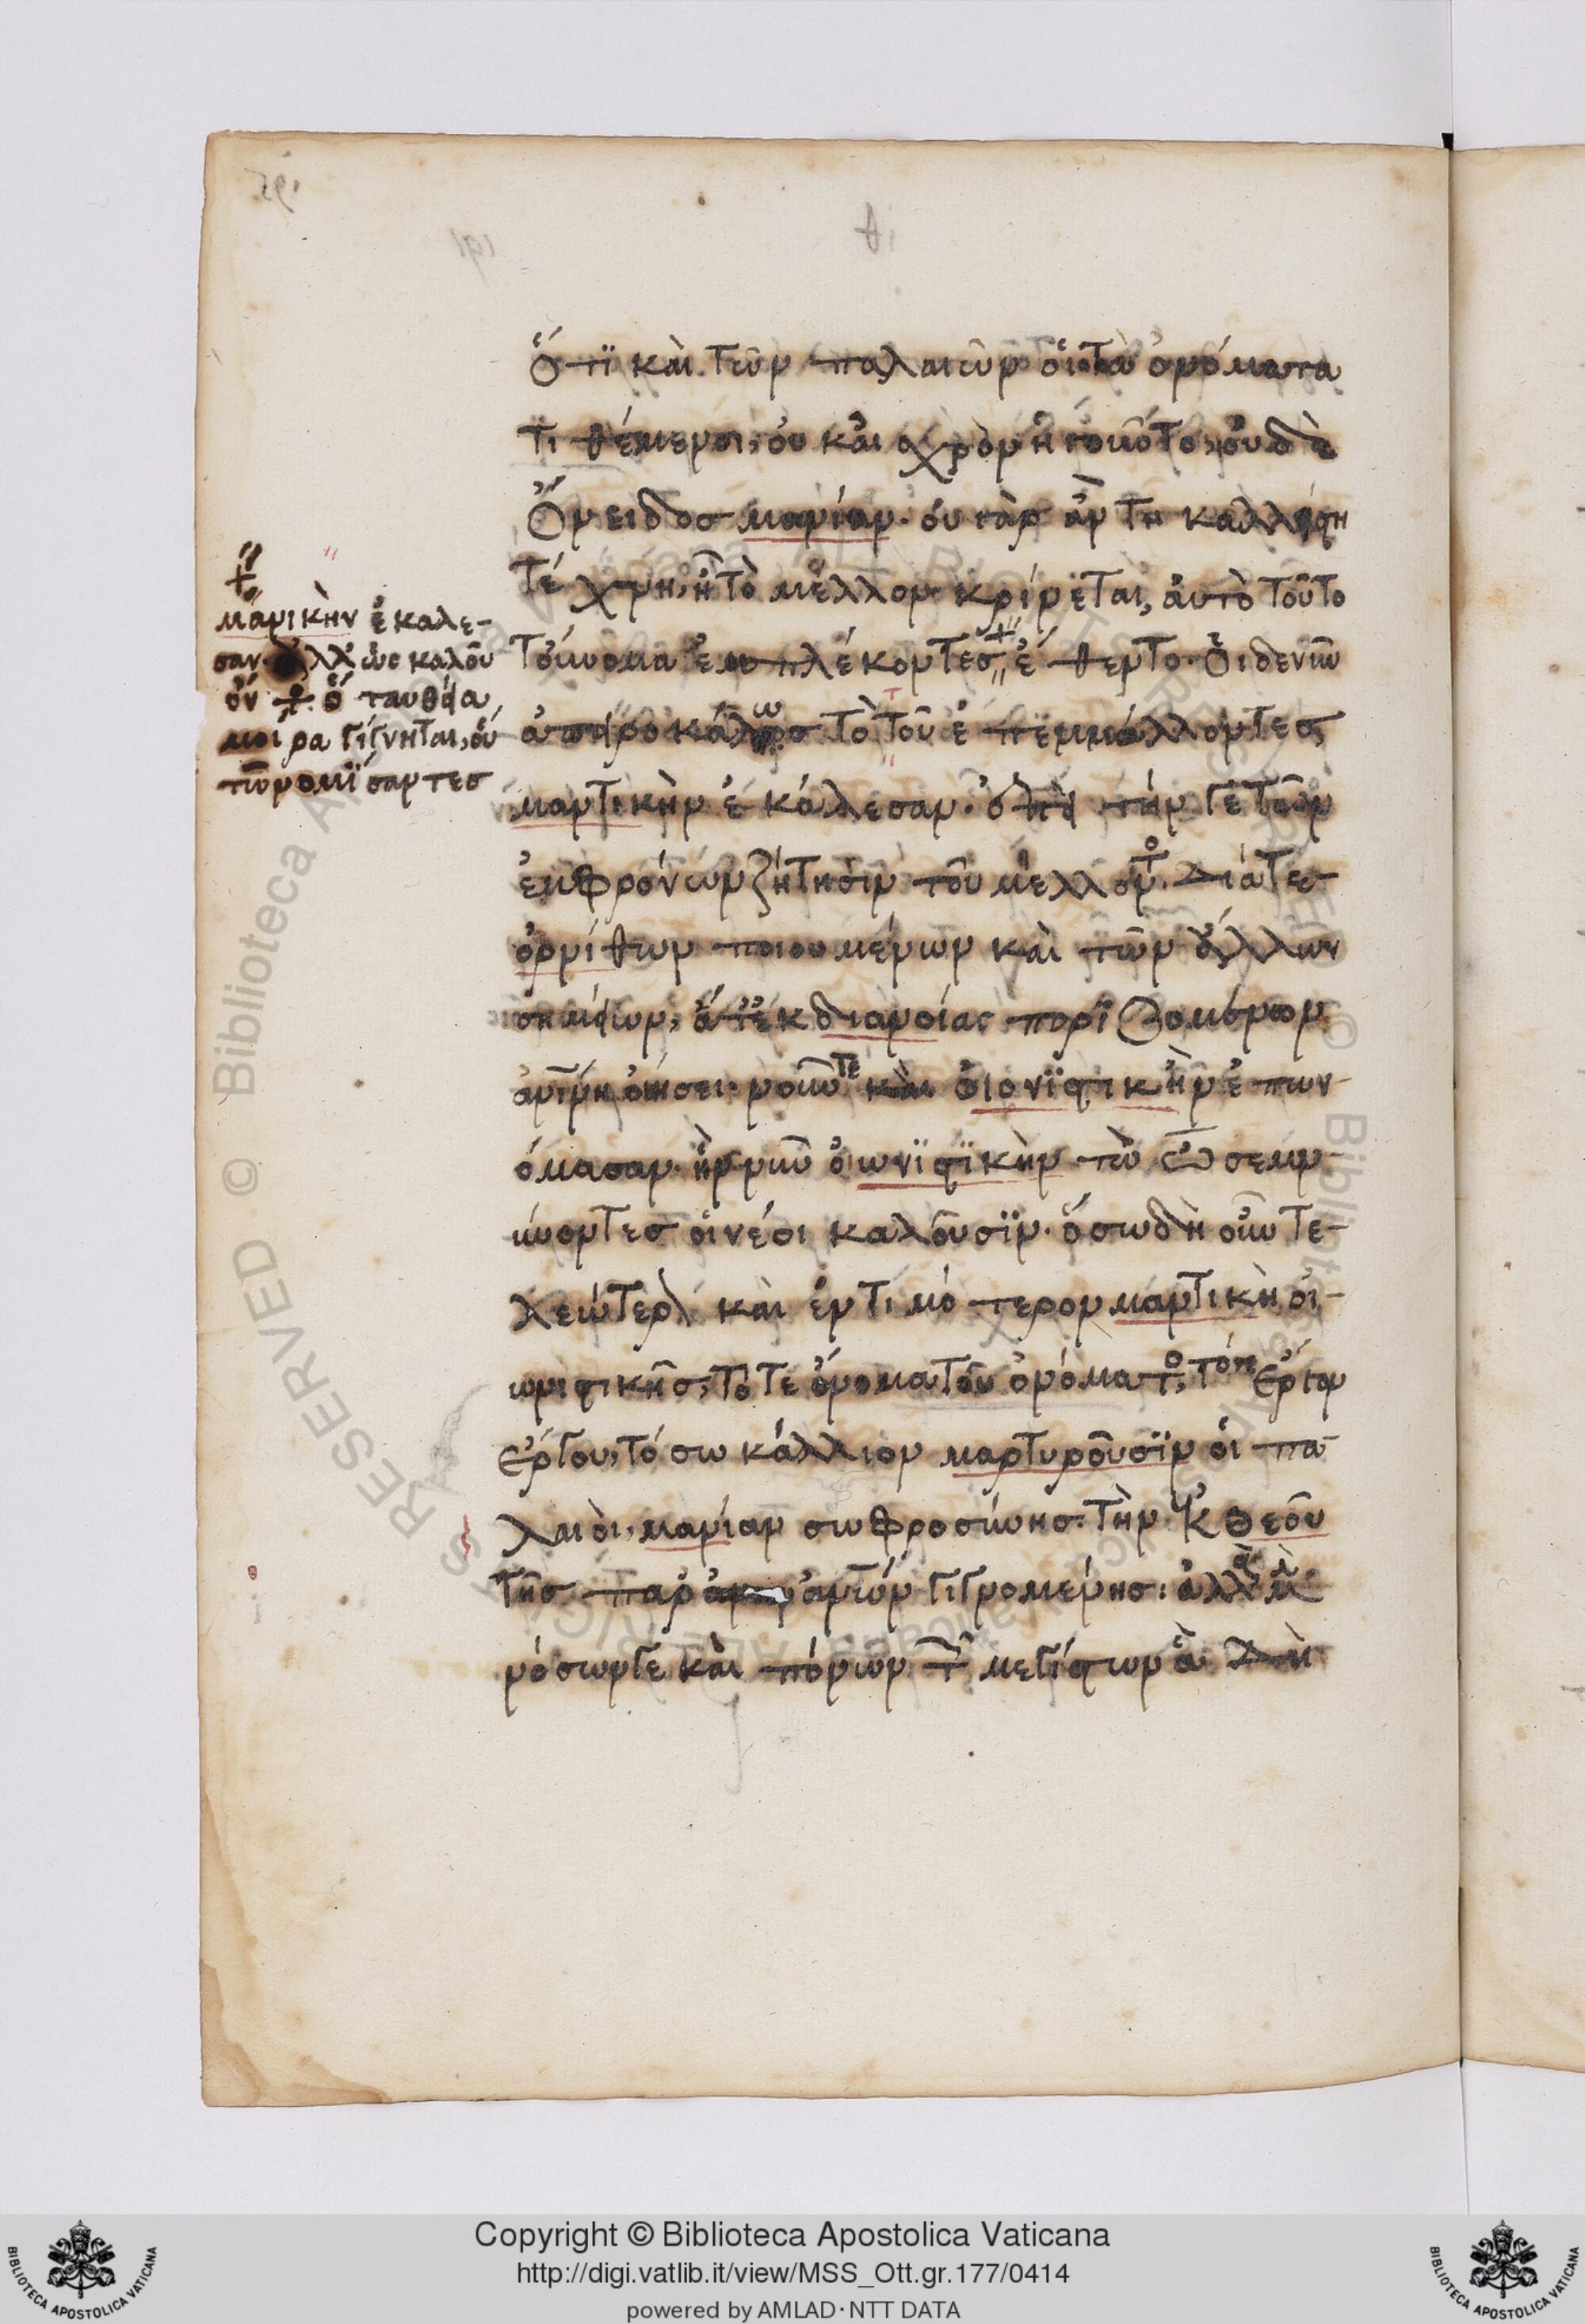 ὅτι καὶ τῶν παλαιῶν οἱ τὰ ὀνόματα
τιθέμενοι, οὐκ αἰσχρὸν ἡγοῦντο, οὐδὲ
ὄνειδος μανίαν· οὐ γὰρ ἂν τῇ καλλίστῃ
τέχνῃ, ᾗ τὸ μέλλον κρίνεται, αὐτὸ τοῦτο
τοὔνομα ἐμπλέκοντες ἔθεντο. οἱ δὲ νῦν
ἀπειροκάλως τὸ ταῦ ἐπεμβάλλοντες
μαντικὴν ἐκάλεσαν.
μανικὴν ἐκάλε-
σαν ἀλλ' ὡς καλοῦ
ὄντος ὅταν θεία
μοίρα γίγνηται, οὕ
τω νομίσαντες
τήν γε τῶν
ἐμφρόνων ζήτησιν τοῦ μέλλοντος διά τε
ὀρνίθων ποιουμένων καὶ τῶν ἄλλων
σημείων, ἅτ' ἐκ διανοίας ποριζομένων
ἀνθρωπίνῃ οἰήσει νοῦν τε καὶ οἰονιστικὴν ἐπων-
όμασαν· ἣν νῦν οἰωνιστικὴν τῷ ω σεμν-
ύνοντες οἱ νέοι καλοῦσιν. ὅσῳ δὴ οὖν τε-
λεώτερον καὶ ἐντιμότερον μαντικὴ οἰ-
ωνιστικῆς, τό τε ὄνομα τοῦ ὀνόματος, τό τε ἔργον
ἔργου, τόσῳ κάλλιον μαρτυροῦσιν οἱ πα-
λαιοὶ, μανίαν σωφροσύνης τὴν ἐκ θεοῦ
τῆς παρ' ἀνθρώπων γιγνομένης: ἀλλὰ μὴν
νόσων γε καὶ πόνων τῶν μεγίστων ἃ δὴ